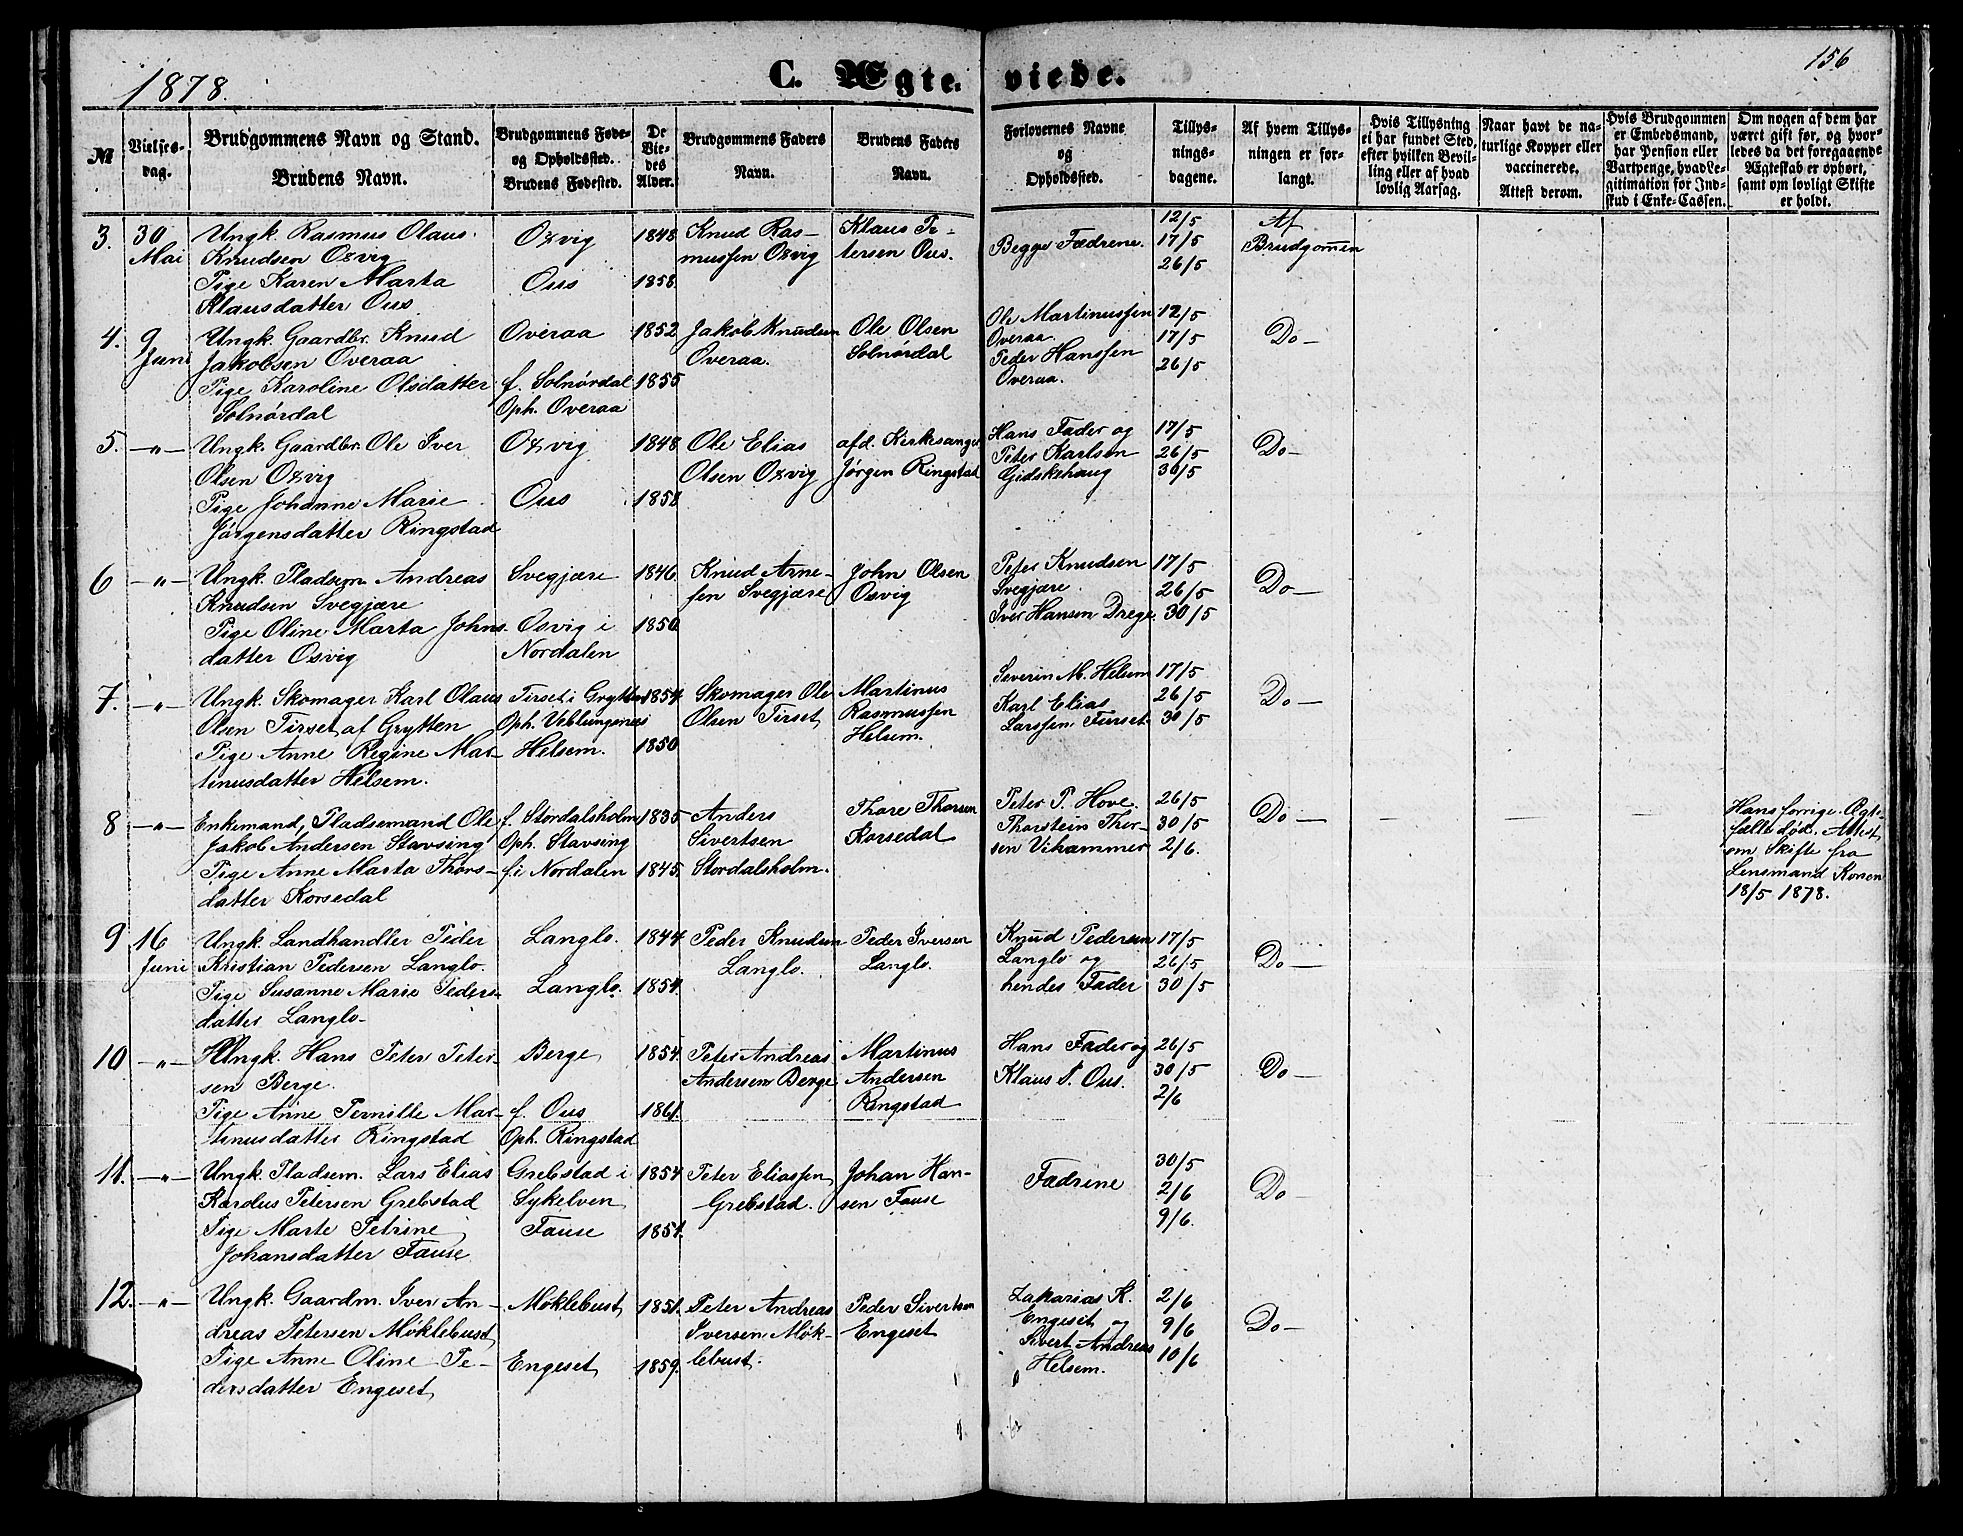 156
1878.
C. Ægteviede.
№
Vielses-
dag.
Brudgommens Navn og Stand.
Brudens Navn.
Brudgommens Føde-
og Opholdssted.
Brudens Fødested.
De
Vie-
des
Alder.
Brudgommens Faders
Navn.
Brudens Faders
Navn.
Forlovernes Navne
og
Opholdssted.
Tillys-
nings-
dagene.
Af hvem Tillys-
ningen er for-
langt.
Hvis Tillysning
ei har fundet Sted,
efter hvilken Bevil-
ling eller af hvad
lovlig Aarsag.
Naar havt de na-
turlige Kopper eller
vaccinerede.
Attest derom.
Hvis Brudgommen
er Embedsmand,
har Pension eller
Vartpenge, hvad Le-
gitimation for Ind-
skud i Enke-Cassen.
Om nogen af dem har
været gift før, og hvor-
ledes da det foregaaende
Ægteskab er ophørt,
samt om lovligt Skifte
er holdt.
3.
30
Mai
Ungk. Rasmus Olaus
Knudsen Oxvig
Pige Karen Marta
Klausdatter Ous
Oxvig
Ous
1848
1858.
Knud Ras-
mussen Oxvig
Klaus Pe-
tersen Ous.
Begge Fædrene.
12/5
17/5
26/5
Af
Brudgommen
4.
9
Juni
Ungk. Gaardbr. Knud
Jakobsen Overaa
Pige Karoline Olsdatter
Solnørdal
Overaa
f. Solnørdal
Oph. Overaa
1852
1855
Jakob Knudsen
Overaa.
Ole Olsen
Solnørdal
Ole Martinussen
Overaa.
Peder Hanssen
Overaa.
12/5
17/5
26/5
Do-
5.
-"-
Ungk. Gaardbr. Ole Iver
Olsen Oxvig
Pige Johanne Marie
Jørgensdatter Ringstad
Oxvig
Ous
1848
1858
Ole Elias
Olsen Oxvig
afd. Kirkesanger
Jørgen Ringstad
Hans Fader og
Peter Karlsen
Gidskehaug
17/5
26/5
30/5
Do-
6
-"-
Ungk. Pladsem. Andreas
Knudsen Svegjære
Pige Oline Marta Johns-
datter Osvig
Svegjære
Osvig i
Nordalen
1846
1850
Knud Arne-
sen Svegjære
John Olsen
Osvig
Peter Knudsen
Svegjære
Iver Hansen Drege
17/5
26/5
30/5
Do-
7.
-"-
Ungk. Skomager Karl Olaus
Olsen Tirset af Grytten
Pige Anne Regine Mar-
tinusdatter Helsem.
Tirset i Grytten
Oph. Veblungsnes
Helsem.
1854
1850
Skomager Ole
Olsen Tirset
Martinus
Rasmussen
Helsem.
Severin M. Helsem
Karl Elias
Larssen Furset
17/5
26/5
30/5
Do-
8
-"-
Enkemand, Pladsemand Ole
Jakob Andersen Stavsing
Pige Anne Marta Thors-
datter Korsedal
f. Stordalsholm
Oph. Stavsing
f. i Nordalen
1835
1845.
Anders
Sivertsen
Stordalsholm.
Thore Thorsen
Korsedal
Peter P. Hove.
Thorstein Thor-
sen Vihammer
26/5
30/5
2/6.
Do-
Hans forrige Ægte-
fælle død. Attest
om Skifte fra
Lensmand Korsen
18/5 1878.
9
16
Juni
Ungk. Landhandler Peder
Kristian Pedersen Langlo.
Pige Susanne Marie Peders-
datter Langlo-
Langlo.
Langlo.
1844.
1854.
Peder Knudsen
Langlo.
Peder Iversen
Langlo.
Knud Pedersen
Langlo og
hendes Fader
17/5
26/5
30/5
Do-
10
-"-
Ungk. Hans Peter Peter-
sen Berge.
Pige Anne Pernille Mar-
tinusdatter Ringstad
Berge
f. Ous
Oph. Ringstad
1854.
1861.
Peter Andreas
Andersen Berge
Martinus
Andersen
Ringstad
Hans Fader og
Klaus P. Ous.
26/5
30/5
2/6
Do-
11.
-"-
Ungk. Pladsem. Lars Elias
Kardus Petersen Grebstad
Pige Marte Petrine
Johansdatter Fause
Grebstad i
Sykelven
Fause
1854
1851.
Peter Eliassen
Grebstad.
Johan Han-
sen Fause
Fædrene
30/5
2/6
9/6.
Do-
12.
-"-
Ungk. Gaardm. Iver An-
dreas Petersen Møklebust
Pige Anne Oline Pe-
dersdatter Engeset
Møklebust
Engeset
1851.
1859.
Peter Andreas
Iversen Møk-
lebust.
Peder Sivertsen
Engeset
Zakarias K.
Engeset og
Sivert Andreas
Helsem.
2/6
9/6
10/6
Do-